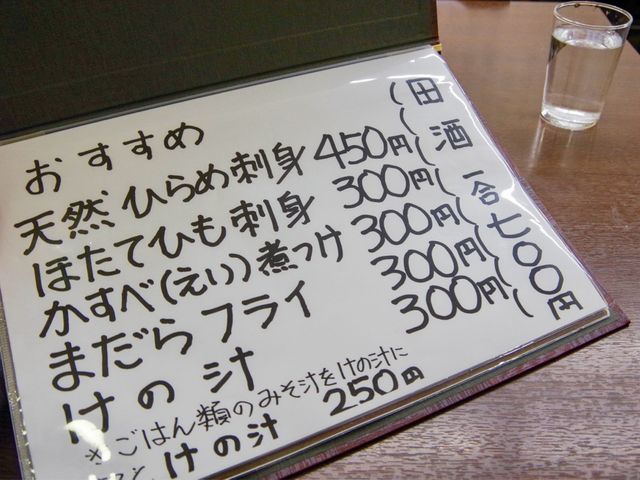 おすすめ
天然ひらめ刺身 450円
ほたてひも刺身 300円
かすべ(えい)煮つけ 300円
まだらフライ 300円
けの汁 300円
※ごはん類のみそ汁をけの汁に
けの汁 250円
田酒 一合 七〇〇円